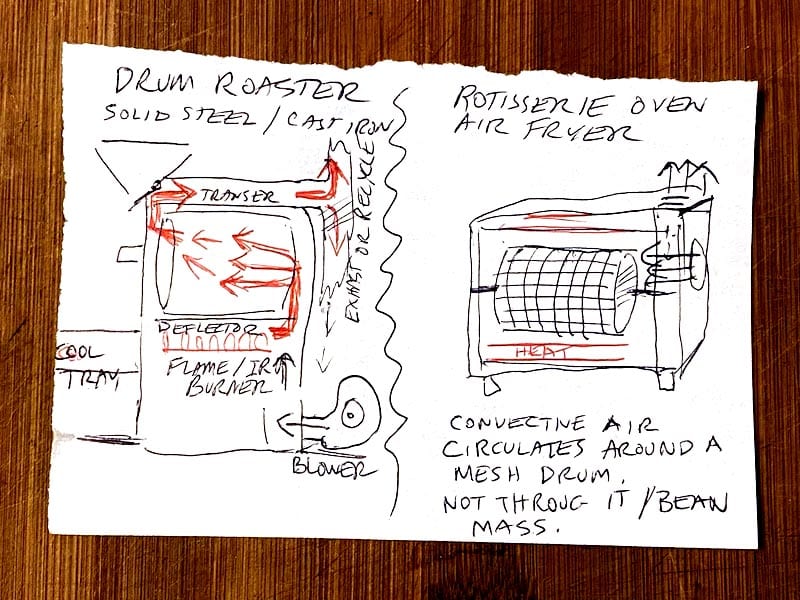 DRUM ROASTER
SOLID STEEL / CAST IRON
TRANSER
EXHAST OR RECYCLE
DEFLECTOR
FLAME / IR
BURNER
COOL
TRAY
BLOWER
ROTISSERIE OVEN
AIR FRYER
HEAT
CONVECTIVE AIR
CIRCULATES AROUND A
MESH DRUM.
NOT THROUG IT / BEAN
MASS.